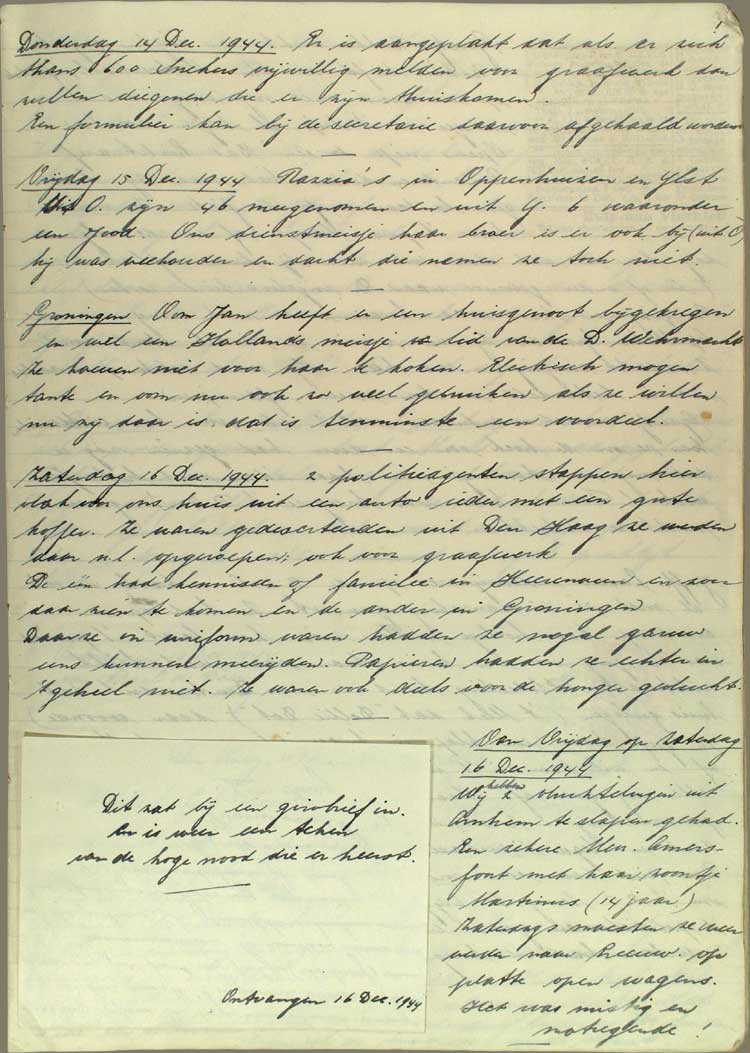 1
Donderdag 14 Dec. 1944. Er is aangeplakt dat als er zich
thans 600 Snekers vrijwillig melden voor graafwerk dan
zullen diegenen die er zijn thuiskomen.
Een formulier kan bij de secretarie daarvoor afgehaald worden
Vrijdag 15 Dec. 1944 Razzia's in Oppenhuizen en Ylst
Uit O. zijn 46 meegenomen en uit Y. 6 waaronder
een Jood. Ons dienstmeisje haar broer is er ook bij (uit O)
hij was veehouder en dacht die nemen ze toch niet.
Groningen Oom Jan heeft er een huisgenoot bijgekregen
en wel een Hollands meisje lid van de D. Wehrmacht
Ze hoeven niet voor haar te koken. Electrisch mogen
tante en oom nu ook zo veel gebruiken als ze willen
nu zij daar is. dat is tenminste een voordeel.
Zaterdag 16 Dec. 1944. 2 politieagenten stappen hier
vlak voor ons huis uit een auto ieder met een grote
koffer. Ze waren gedeserteerden uit Den Haag ze werden
daar n.l. opgeroepen; ook voor graafwerk
De één had kennissen of familie in Heerenveen en zou
daar zien te komen en de ander in Groningen
Daar ze in uniform waren hadden ze nogal gauw
eens kunnen meerijden. Papieren hadden ze echter in
't geheel niet. Ze waren ook deels voor de honger gevlucht.
Dit zat bij een girobrief in.
Er is weer een teken
van de hoge nood die er heerst.
Ontvangen 16 Dec. 1944
Van Vrijdag op Zaterdag
16 Dec. 1944
Wij hebben 2 vluchtelingen uit
Arnhem te slapen gehad.
Een zekere Mevr. Amers-
foort met haar zoontje
Martinus (14 jaar)
Zaterdags moesten ze weer
verder naar Leeuw. op
platte open wagens.
Het was mistig en
motregende!